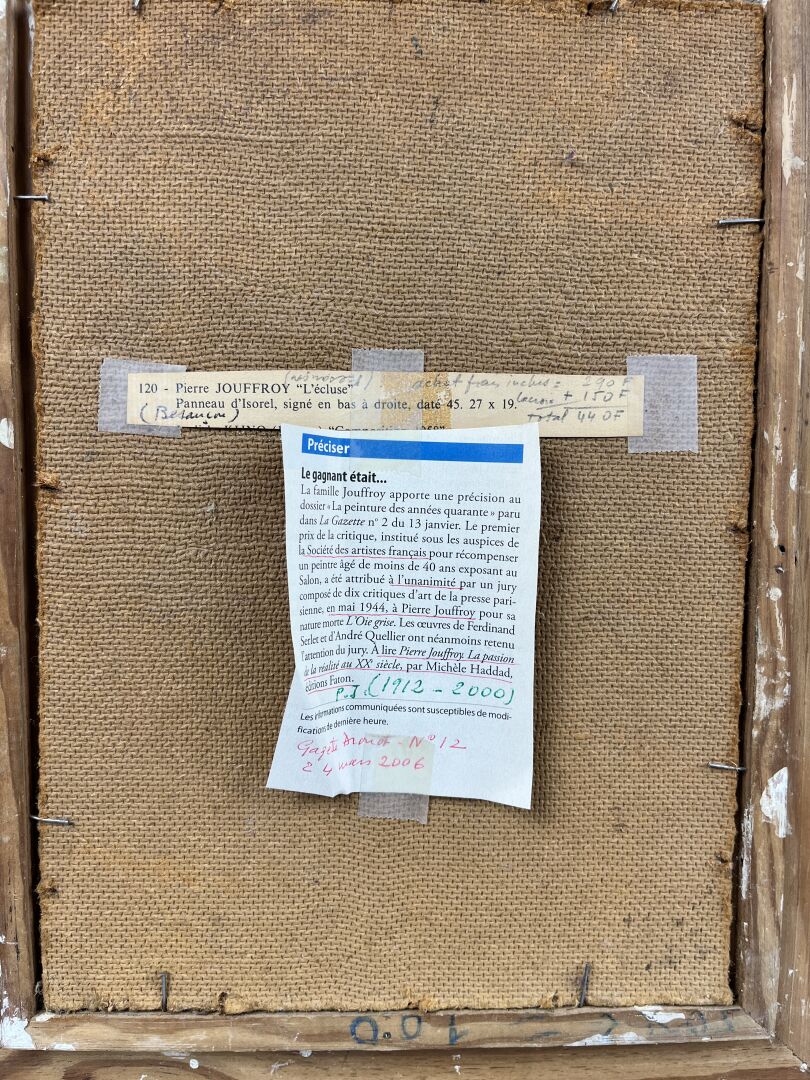 achat frais inclus = 290 F
120 - Pierre JOUFFROY “L’écluse”
+ 150 F
Panneau d’Isorel, signé en bas à droite, daté 45. 27 x 19.
Total 440F
(Besançon)
Préciser
Le gagnant était...
La famille Jouffroy apporte une précision au
dossier « La peinture des années quarante » paru
dans La Gazette n° 2 du 13 janvier. Le premier
prix de la critique, institué sous les auspices de
la Société des artistes français pour récompenser
un peintre âgé de moins de 40 ans exposant au
Salon, a été attribué à l’unanimité par un jury
composé de dix critiques d’art de la presse pari-
sienne, en mai 1944, à Pierre Jouffroy pour sa
nature morte L’Oie grise. Les œuvres de Ferdinand
Serlet et d’André Quellier ont néanmoins retenu
l’attention du jury. À lire Pierre Jouffroy. La passion
de la réalité au XXe siècle, par Michèle Haddad,
éditions Faton.
P.J. (1912 - 2000)
Les informations communiquées sont susceptibles de modi-
fications de dernière heure.
Gazette Drouot - N° 12
24 mars 2006
100